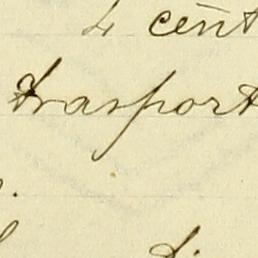 4 cent
trasport